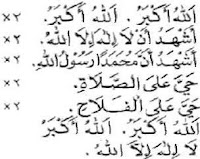 اَللهُ أَكْبَرُ . اَللهُ أَكْبَرُ . ×٢
أَشْهَدُ أَنْ لَا إِلٰهَ إِلَّا اللهُ. ×٢
أَشْهَدُ أَنَّ مُحَمَّدًا رَسُولُ اللهِ. ×٢
حَيَّ عَلَى الصَّلَاةِ. ×٢
حَيَّ عَلَى الْفَلَاحِ. ×٢
اَللهُ أَكْبَرُ . اَللهُ أَكْبَرُ
لَا إِلٰهَ إِلَّا اللهُ .